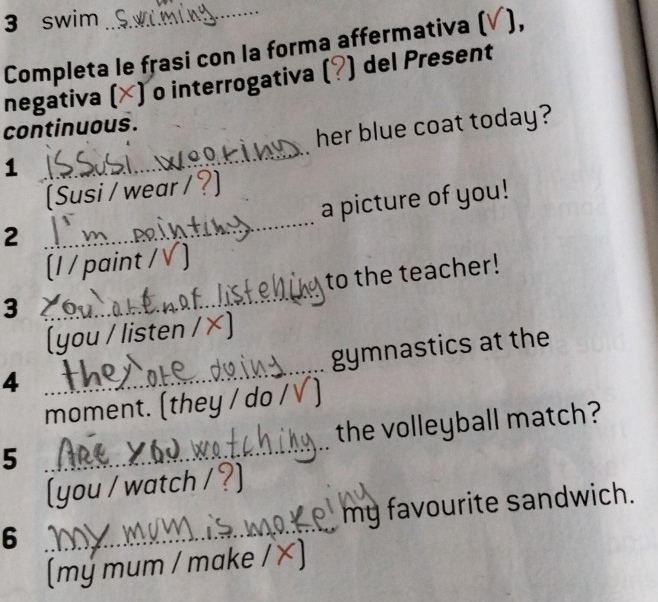 3 swim swiming
Completa le frasi con la forma affermativa (√),
negativa (×) o interrogativa (?) del Present
continuous.
1 is Susi wearing her blue coat today?
(Susi / wear / ?)
2 I'm painting a picture of you!
(I / paint / √)
3 You are not listening to the teacher!
(you / listen / ×)
4 they are doing gymnastics at the
moment. (they / do / √)
5 Are you watching the volleyball match?
(you / watch / ?)
6 my mum is makeing my favourite sandwich.
(my mum / make / ×)